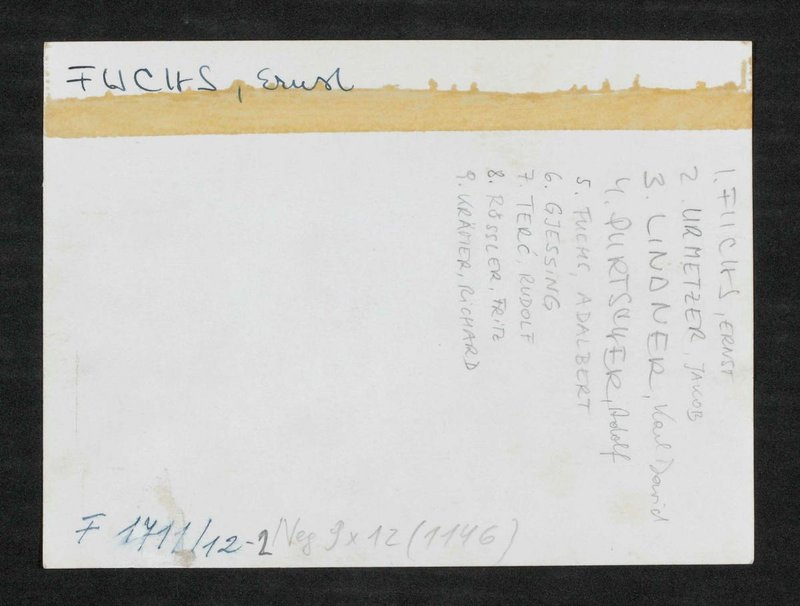 FUCHS, Ernst
1. FUCHS, ERNST
2. URMETZER, JAKOB
3. LINDNER, Karl David
4. PURTSCHER, Adolf
5. FUCHS, ADALBERT
6. GJESSING
7. TERČ, RUDOLF
8. RÖSSLER, FRITZ
9. KRÄMER, RICHARD
F 1711/12-2 Neg 9x12 (1146)